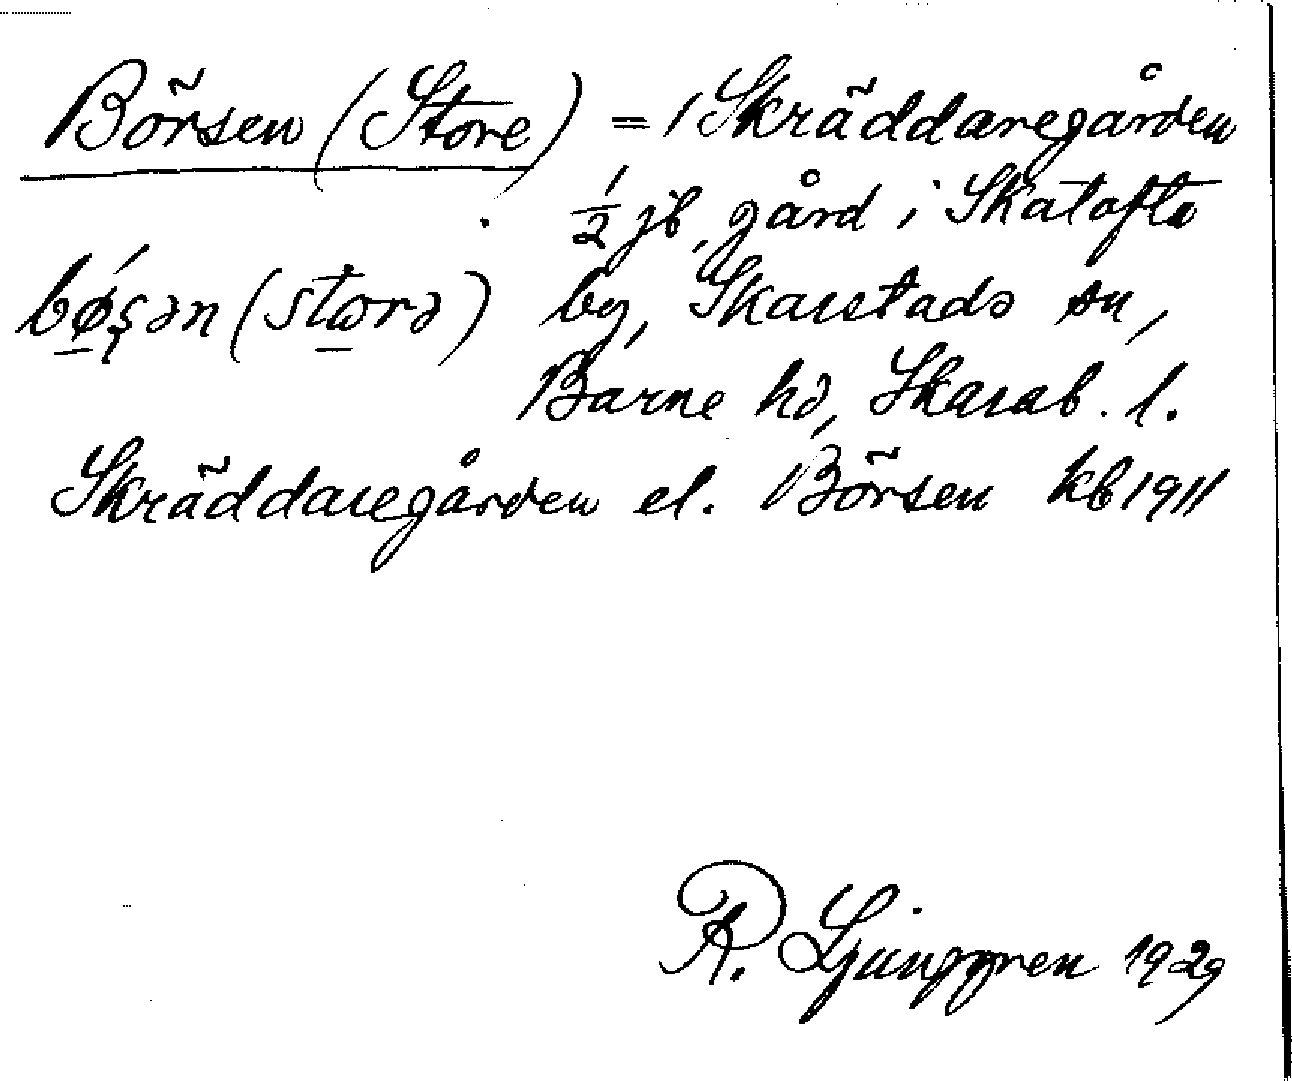 Börsen (Store) = / Skräddaregården
1/2 jb, gård i Skatofta
bø̱ʂən (stωrə) by, Skarstads sn,
Barne hd, Skarab. l.
Skräddaregården el. Börsen kb 1911
R. Ljunggren 1929